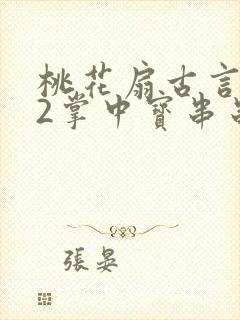 桃花扇古言
2掌中寶串
張晏